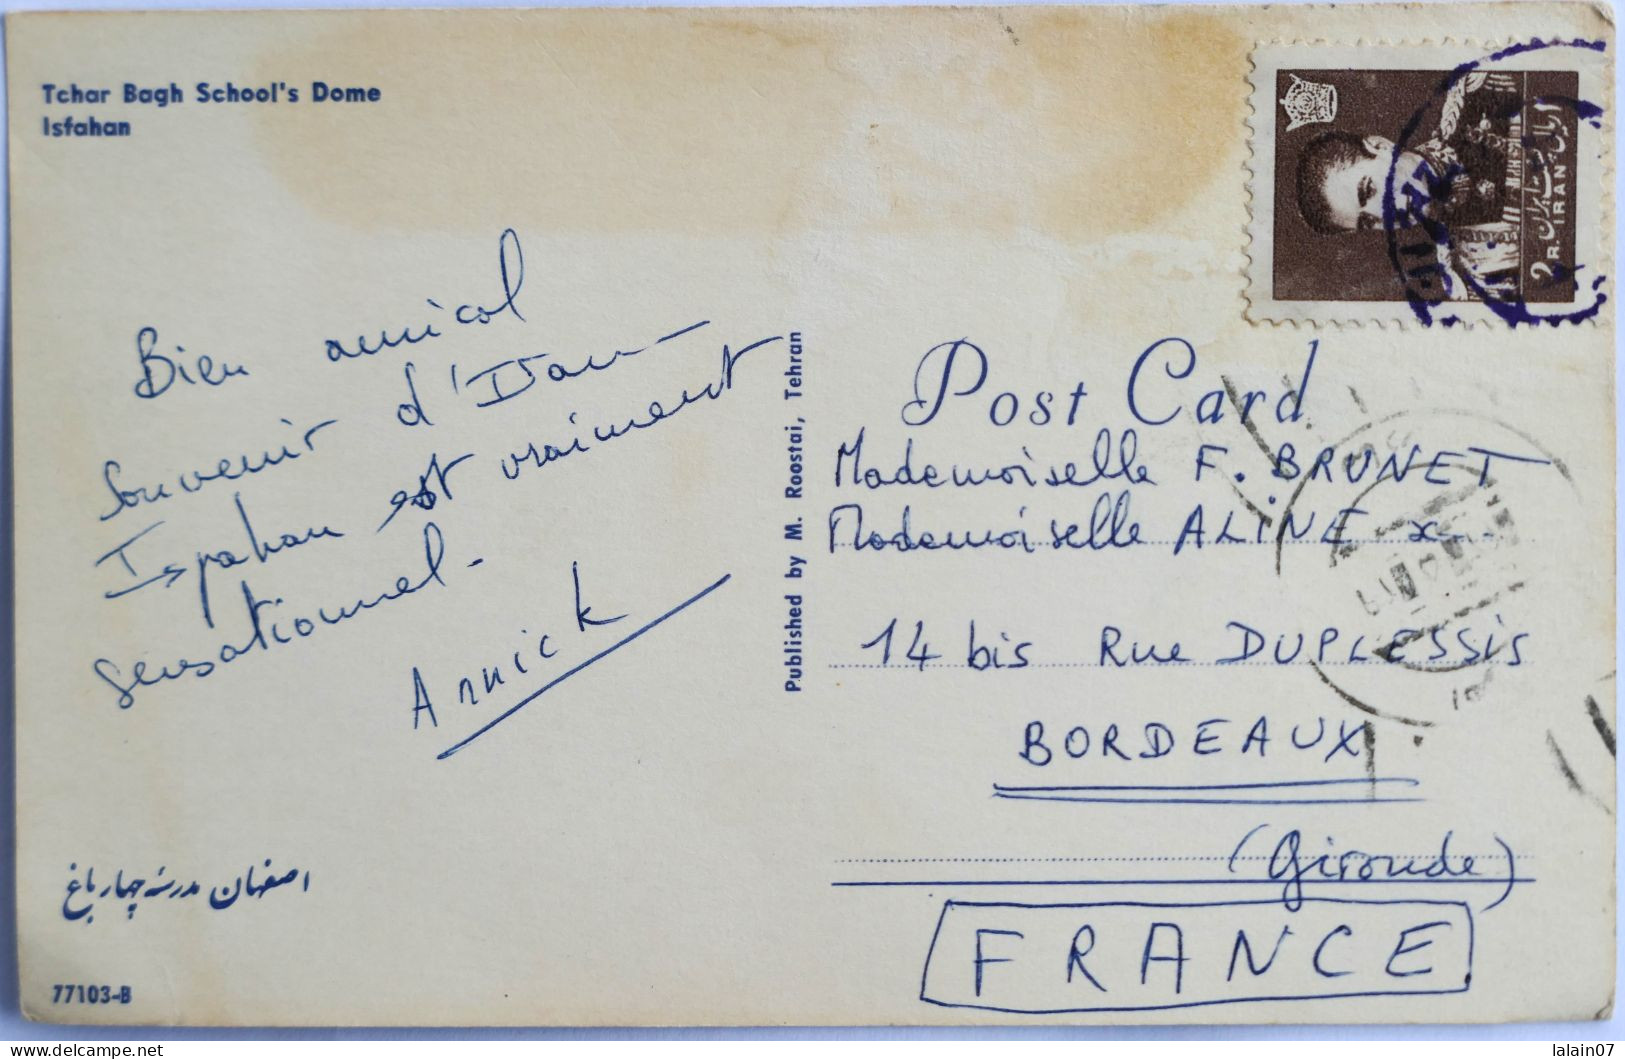 Tchar Bagh School's Dome
Isfahan
Bien amical
souvenir d'Iran
Ispahan est vraiment
sensationnel.
Annick
اصفهان مدرسه چهار باغ
77103-B
Published by M. Roostai, Tehran
2 R. IRAN
Post Card
Mademoiselle F. BRUNET
Mademoiselle ALINE
14 bis Rue DUPLESSIS
BORDEAUX
(Gironde)
FRANCE
lalain07